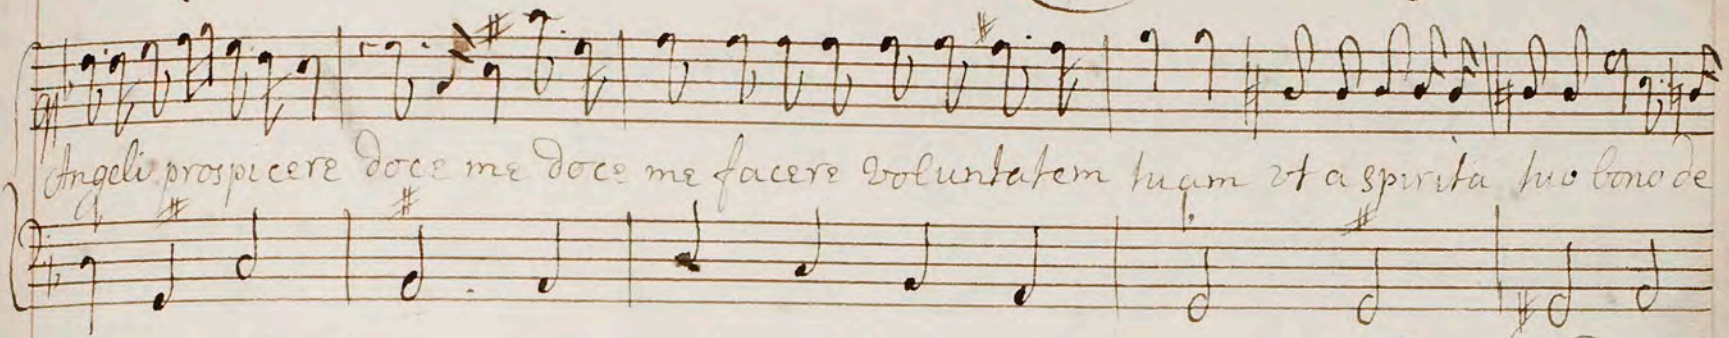 Angeli prospicere doce me doce me facere voluntatem tuam vt a spirita tuo bono de